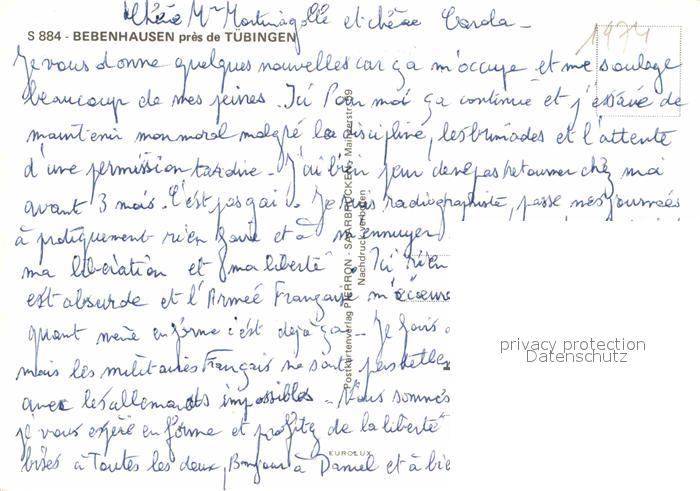 Chère Mme et chère Carola -
1974
S 884 - BEBENHAUSEN près de TÜBINGEN
Je vous donne quelques nouvelles car ça m'occupe et me soulage
beaucoup de mes peines. Ici Pour moi ça continue et j'essaie de
maintenir mon moral malgré la discipline, les brimades et l'attente
d'une permission tardive. J'ai bien peur de ne pas retourner chez moi
avant 3 mois. C'est pas gai. Je suis radiographiste, passe mes journées
à pratiquement rien faire et à m'ennuyer
ma libération et "ma liberté". Ici rien
est absurde et l'Armée Française m'écœure
quant même en forme c'est déjà ça - Je fais
mais les militaires Français ne sont pas
avec les allemands impossibles - Nous sommes
je vous espère en forme et profitez de la liberté
bises à Toutes les deux, Bonjour à Daniel et à
Postkartenverlag PIERRON - SAARBRÜCKEN, Mainzerstr.
Nachdruck verboten
EUROLUX
privacy protection
Datenschutz